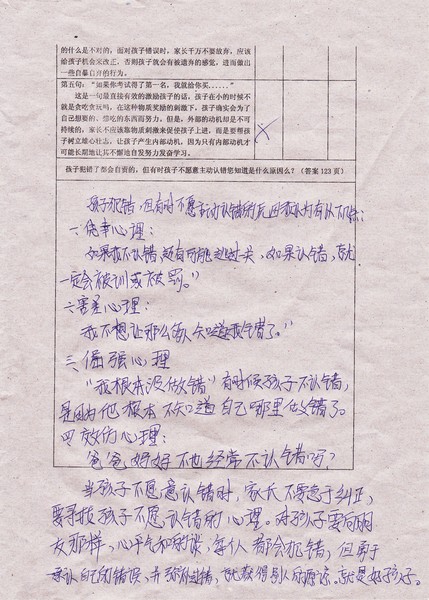 的什么是不对的，面对孩子错误时，家长千万不要放弃，应该
给孩子机会来改正，否则孩子就会有被遗弃的感觉，进而做出
一些自暴自弃的行为。
第五句：“如果你考试得了第一名，我就给你买……”
这是一句最直接有效的激励孩子的话，孩子在小的时候不
就是贪吃贪玩吗，在这种物质奖励的刺激下，孩子确实会为了
自己想要的、想吃的东西而努力。但是，外部的动机却是不可
持续的，家长不应该靠物质刺激来促使孩子上进，而是要帮孩
子树立雄心壮志，让孩子产生内部动机，因为只有内部动机才
可能长期地让其不懈地自发努力发奋学习。
孩子犯错了都会自责的，但有时孩子不愿意主动认错您知道是什么原因么？（答案123页）
孩子犯错，但有时不愿主动认错的原因我认为有以下几点：
一、侥幸心理：
如果我不认错，还有可能逃过一关，如果认错，就
一定会被训或被骂。”
二害羞心理：
我不想让那么多人知道我错了。”
三、倔强心理
“我根本没做错”有时候孩子不认错，
是因为他根本不知道自己哪里做错了。
四效仿心理：
爸爸妈妈不也经常不认错吗？
当孩子不愿意认错时，家长不要急于纠正，
要寻找孩子不愿认错的心理。对孩子要向朋
友那样，心平气和的谈，每个人都会犯错，但勇于
承认自己的错误，并弥补过错，就能获得别人的原谅。就是好孩子。